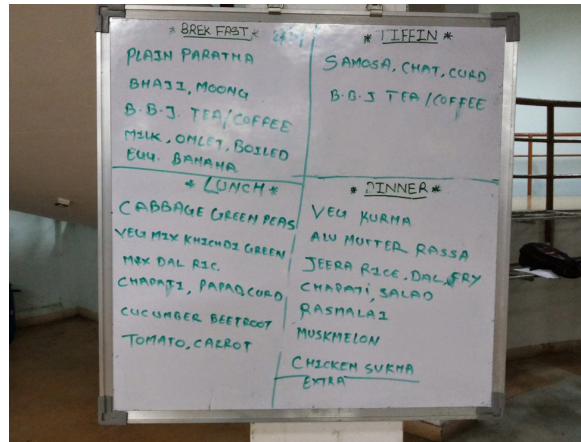 * BREK FAST *
PLAIN PARATHA
BHAJI, MOONG
B.B.J. TEA/COFFEE
MILK, OMLET, BOILED
EGG. BANANA
* TIFFIN *
SAMOSA, CHAT, CURD
B.B.J TEA/COFFEE
* LUNCH *
CABBAGE GREEN PEAS
VEG MIX KHICHDI GREEN
MIX DAL RIC.
CHAPATI, PAPAD, CURD
CUCUMBER BEETROOT
TOMATO, CARROT
* DINNER *
VEG KURMA
ALU MUTTER RASSA
JEERA RICE, DAL, FRY
CHAPATI, SALAD
RASMALAI
MUSKMELON
CHICKEN SUKHA
EXTRA